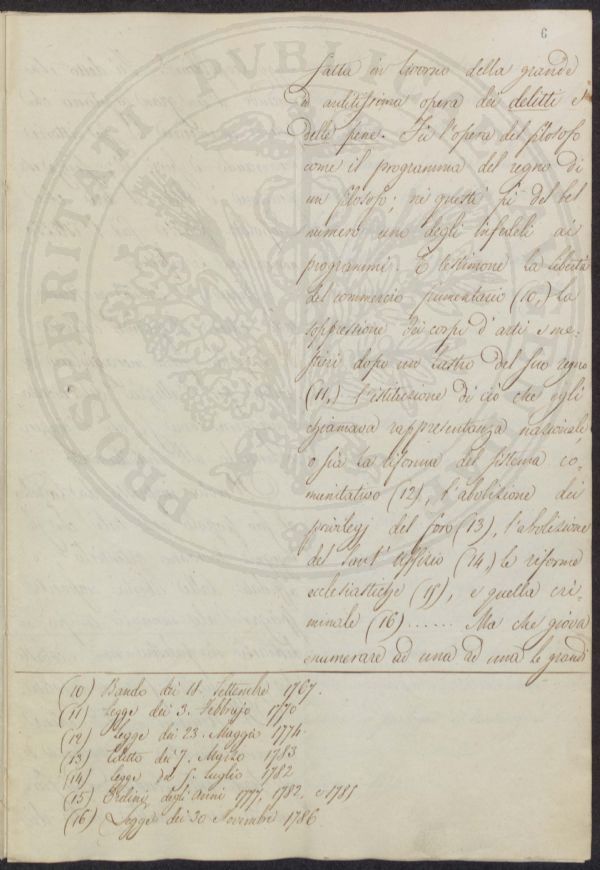 6
fatta in Livorno della grande
ed arditissima opera dei delitti e
delle pene. Fù l'opera del filosofo
come il programma del regno di
un filosofo; nè questi fù del bel
numero uno degli infedeli ai
programmi. E testimone la libertà
del commercio frumentario (10,) la
soppressione dei corpi d'arti e me-
stieri dopo un lustro del suo regno
(11,) l'istituzione di ciò che egli
chiamava rappresentanza nazionale,
o sia la riforma del sistema co-
munitativo (12), l'abolizione dei
privilegj del foro (13), l'abolizione
del Sant' Uffizio (14,) le riforme
ecclesiastiche (15), e quella cri-
minale (16) ...... Ma che giova
enumerare ad una ad una le grandi
(10) Bando dei 11. Settembre 1767.
(11) Legge dei 3. Febbrajo 1770
(12) Legge dei 23. Maggio 1774.
(13) Editto dei 7. Marzo 1783
(14) Legge de 5. Luglio 1782
(15) Ordini degli anni 1777, 1782. e 1785
(16) Legge dei 30 Novembre 1786.
PROSPERITATI PUBLICAE